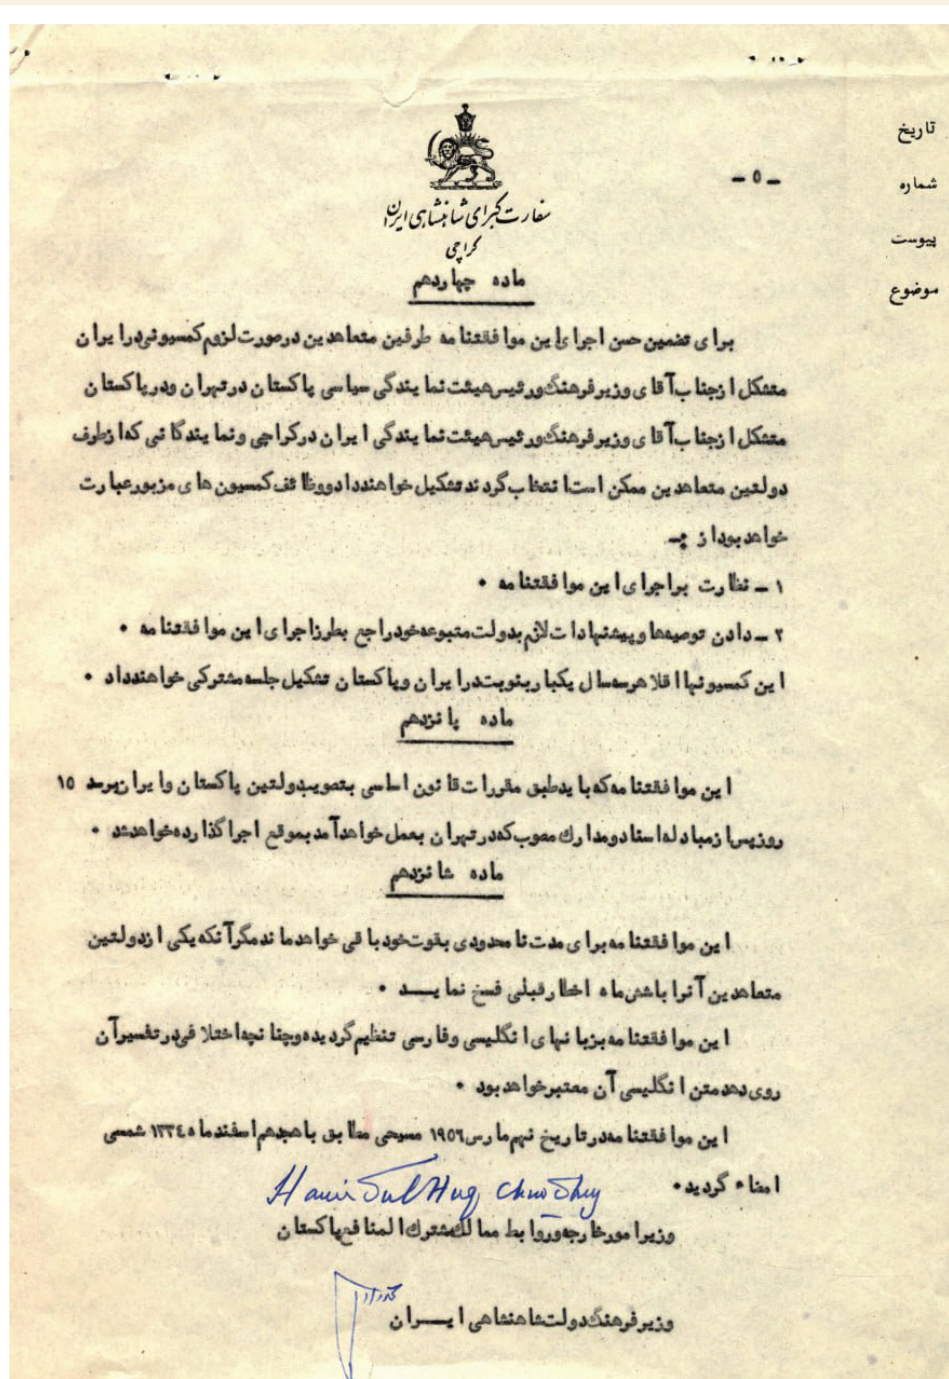 تاریخ
شماره
پیوست
موضوع
ـ ٥ ـ
سفارت کبرای شاهنشاهی ایران
کراچی
ماده چهاردهم
برای تضمین حسن اجرای این موافقتنامه طرفین متعاهدین در صورت لزوم کمسیونی در ایران
متشکل از جناب آقای وزیر فرهنگ و رئیس هیئت نمایندگی سیاسی پاکستان در تهران و در پاکستان
متشکل از جناب آقای وزیر فرهنگ و رئیس هیئت نمایندگی ایران در کراچی و نمایندگانی که از طرف
دولتین متعاهدین ممکن است انتخاب گردند تشکیل خواهند داد و وظائف کمسیون های مزبور عبارت
خواهد بود از :ـ
١ ـ نظارت بر اجرای این موافقتنامه ٠
٢ ـ دادن توصیه‌ها و پیشنهادات لازم بدولت متبوعه خود راجع بطرز اجرای این موافقتنامه ٠
این کمسیونها اقلا هر سه سال یکبار بنوبت در ایران و پاکستان تشکیل جلسه مشترکی خواهند داد ٠
ماده پانزدهم
این موافقتنامه که باید طبق مقررات قانون اساسی بتصویب دولتین پاکستان و ایران برسد ١٥
روز پس از مبادله اسناد و مدارك مصوب که در تهران بعمل خواهد آمد بموقع اجرا گذارده خواهد شد ٠
ماده شانزدهم
این موافقتنامه برای مدت نامحدودی بقوت خود باقی خواهد ماند مگر آنکه یکی از دولتین
متعاهدین آنرا با شش ماه اخطار قبلی فسخ نمایـــد ٠
این موافقتنامه بزبانهای انگلیسی و فارسی تنظیم گردیده و چنانچه اختلافی در تفسیر آن
روی دهد متن انگلیسی آن معتبر خواهد بود ٠
این موافقتنامه در تاریخ نهم مارس ١٩٥٦ مسیحی مطابق با هجدهم اسفند ماه ١٣٣٤ شمسی
امضاء گردید ٠
Hamidul Huq Chowdhry
وزیر امور خارجه و روابط ممالك مشترك المنافع پاکستان
وزیر فرهنگ دولت شاهنشاهی ایـــران